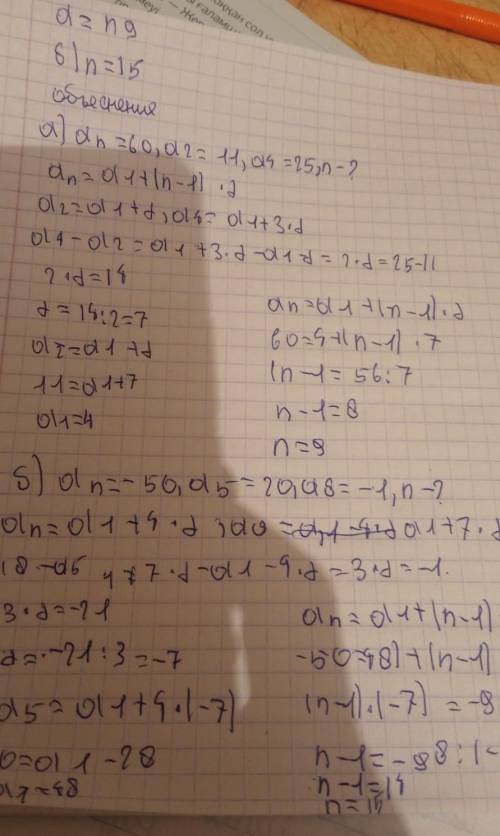 а = n 9
б) n = 15
объеснения
а) an = 60, a2 = 11, a4 = 25, n - ?
an = a1 + (n-1) · d
a2 = a1 + d, a4 = a1 + 3·d
a4 - a2 = a1 + 3·d - a1 d = 2·d = 25-11
2·d = 14
d = 14:2 = 7
a2 = a1 + d
11 = a1 + 7
a1 = 4
an = a1 + (n-1) · d
60 = 4 + (n-1) · 7
(n-1 = 56:7
n-1 = 8
n = 9
б) an = -50, a5 = 20, a8 = -1, n - ?
an = a1 + 4·d, a8 = a1 + 7·d
3·d = -21
d = -21:3 = -7
a5 = a1 + 4·(-7)
0 = a1 - 28
an = a1 + (n-1)
-50 = (84 + (n-1)
(n-1)·(-7) = -9
n-1 = -98:(-
n-1 = 14
n = 15